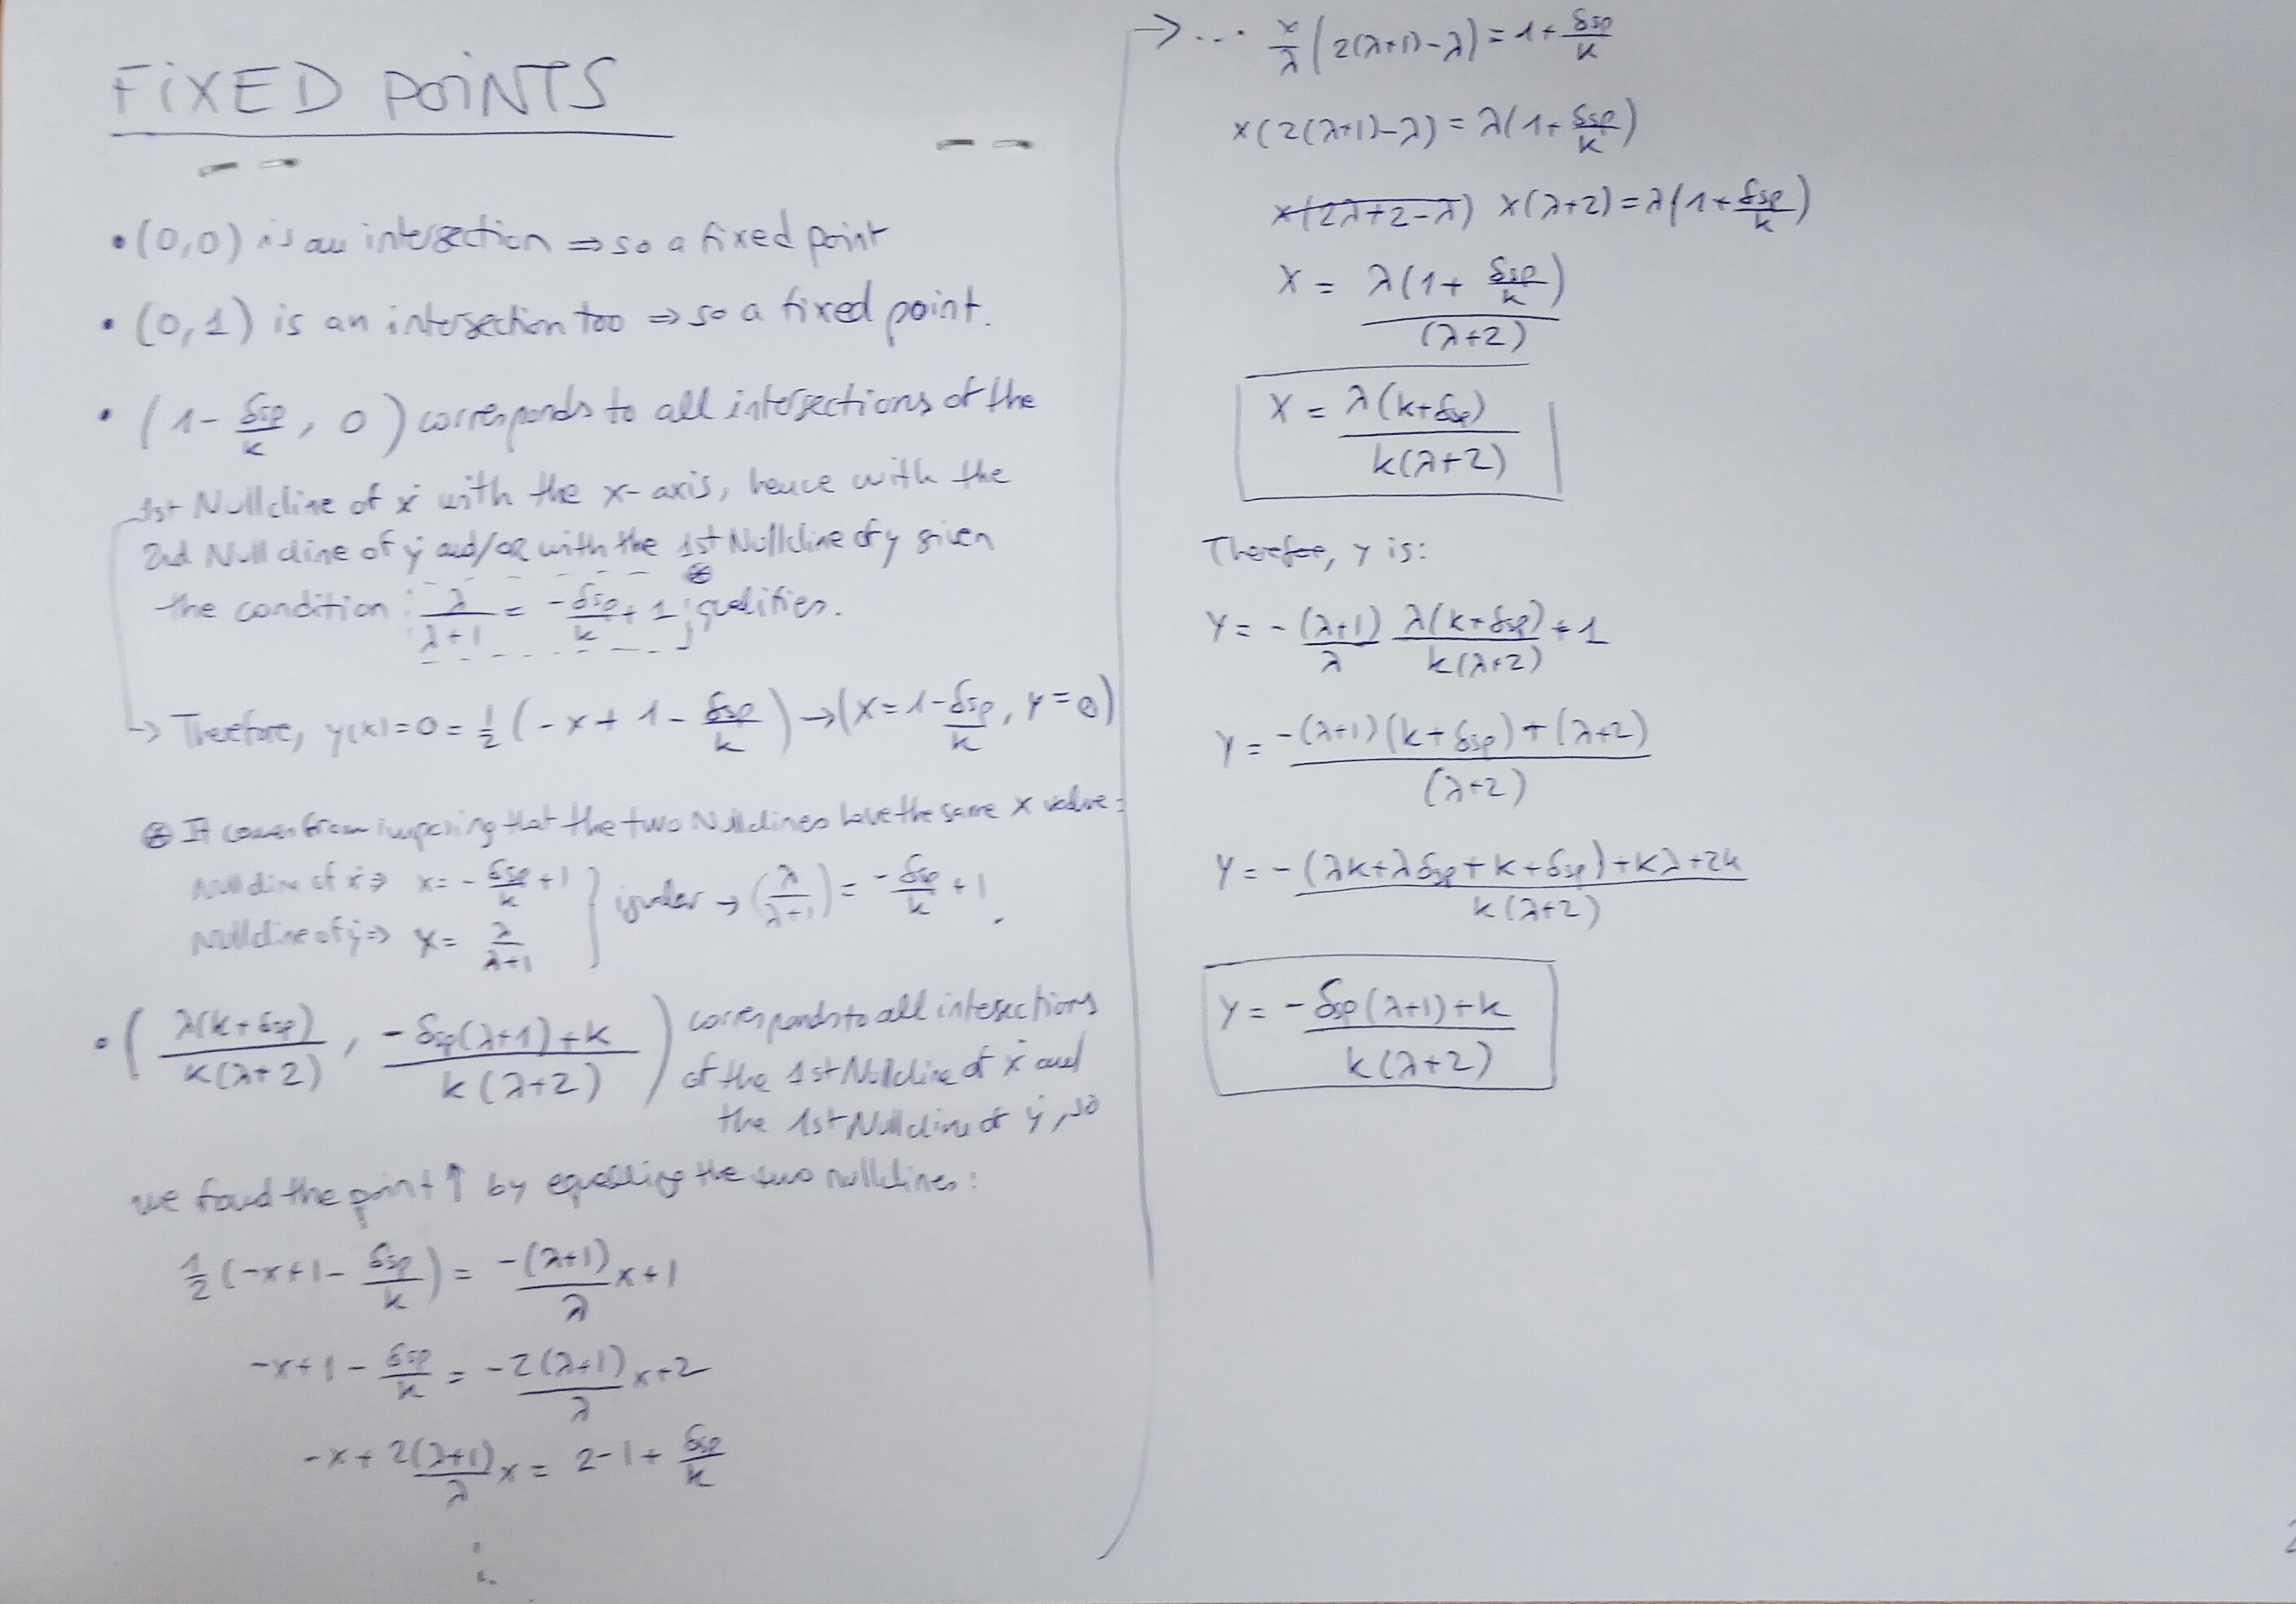 FIXED POINTS
• (0,0) is an intersection ⇒ so a fixed point
• (0,1) is an intersection too ⇒ so a fixed point.
• (1 - δsp/k, 0) corresponds to all intersections of the
1st Nullcline of ẋ with the x-axis, hence with the
2nd Nullcline of ẏ and/or with the 1st Nullcline of y given
the condition: λ/(λ+1) = -δsp/k + 1 ⊛ qualifies.
↳ Therefore, y(x)=0 = 1/2 (-x + 1 - δsp/k) → (x = 1 - δsp/k, y = 0)
⊛ It comes from imposing that the two Nullclines have the same x value:
Nullcline of ẋ ⇒ x = -δsp/k + 1
Nullcline of ẏ ⇒ x = λ/(λ+1)
} → (λ/(λ+1)) = -δsp/k + 1.
• (λ(k+δsp)/k(λ+2), -δsp(λ+1)+k/k(λ+2)) corresponds to all intersections
of the 1st Nullcline of ẋ and
the 1st Nullcline of ẏ, so
we found the point ↑ by equalling the two nullclines:
1/2 (-x+1 - δsp/k) = -(λ+1)/λ x + 1
-x+1 - δsp/k = -2(λ+1)/λ x + 2
-x + 2(λ+1)/λ x = 2-1 + δsp/k
⋮
→ ... x/λ (2(λ+1)-λ) = 1 + δsp/k
x(2(λ+1)-λ) = λ(1 + δsp/k)
x(2λ+2-λ) x(λ+2) = λ(1 + δsp/k)
X = λ(1 + δsp/k)/(λ+2)
X = λ(k+δsp)/k(λ+2)
Therefore, y is:
Y = -(λ+1)/λ λ(k+δsp)/k(λ+2) + 1
Y = -(λ+1)(k+δsp)+(λ+2)/(λ+2)
Y = -(λk+λδsp+k+δsp)+kλ+2k/k(λ+2)
Y = -δsp(λ+1)+k/k(λ+2)
2